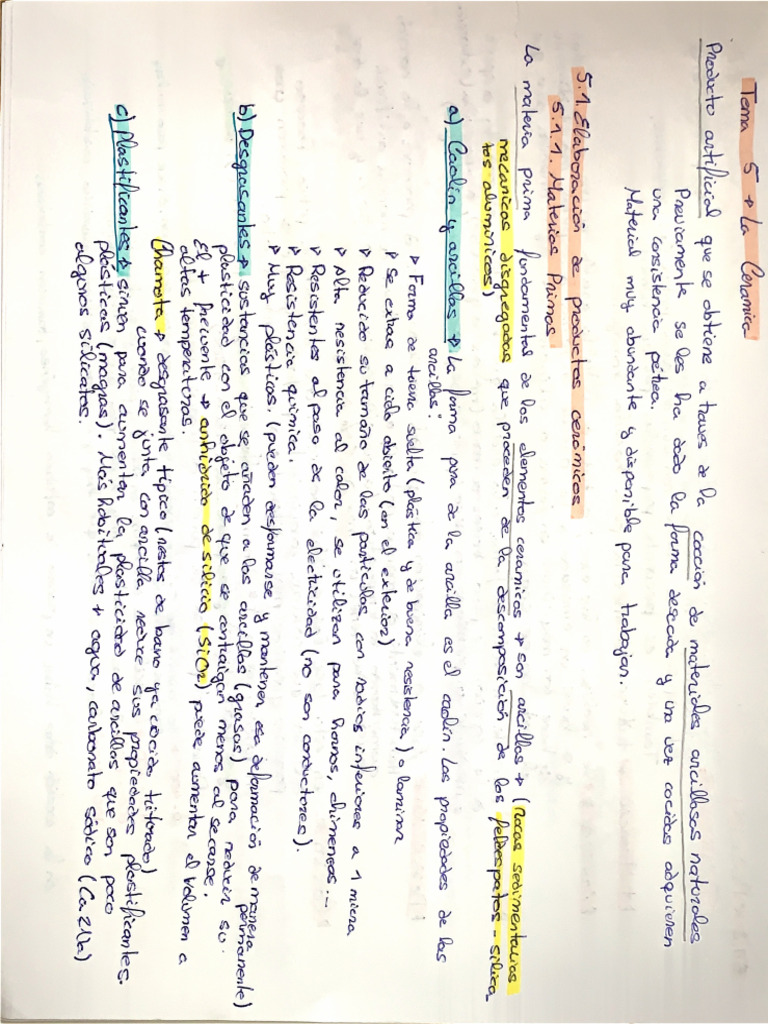 Tema 5 → La Ceramica
Producto artificial que se obtiene a traves de la cocción de materiales arcillosos naturales
Previamente se les ha dado la forma deseada y una vez cocidos adquieren
una consistencia pétrea.
Material muy abundante y disponible para trabajar.
5.1. Elaboración de productos cerámicos
5.1.1. Materias Primas
La materia prima fundamental de los elementos ceramicos → son arcillas → (Rocas sedimentarias
mecanicas disgregadas que proceden de la descomposición de los feldespatos - silica
tos alumínicos)
a) Caolin y arcillas → La forma pura de la arcilla es el caolin. Las propiedades de las
arcillas:
▹ Forma de tierra suelta (plástica y de buena resistencia) o laminar
▹ Se extrae a cielo abierto (en el exterior)
▹ Reducido su tamaño de las partículas con radios inferiores a 1 micra
▹ Alta resistencia al calor, se utilizan para hornos, chimeneas...
▹ Resistentes al paso de la electricidad (no son conductores).
▹ Resistencia química.
▹ Muy plásticos. (pueden desformarse y mantener esa deformación de manera
permanente)
b) Desgrasantes → sustancias que se añaden a las arcillas (grasas) para reducir su
plasticidad con el objeto de que se contraigan menos al secarse.
El + frecuente → anhidrido de silicio (SiO2) puede aumentar el volumen a
altas temperaturas.
Chamota → desgrasante típico (restos de barro ya cocido triturado)
cuando se junta con arcilla reduce sus propiedades plastificantes.
c) Plastificantes → sirven para aumentar la plasticidad de arcillas que son poco
plásticas (magras). Más habituales → agua, carbonato sódico
algunos silicatos.